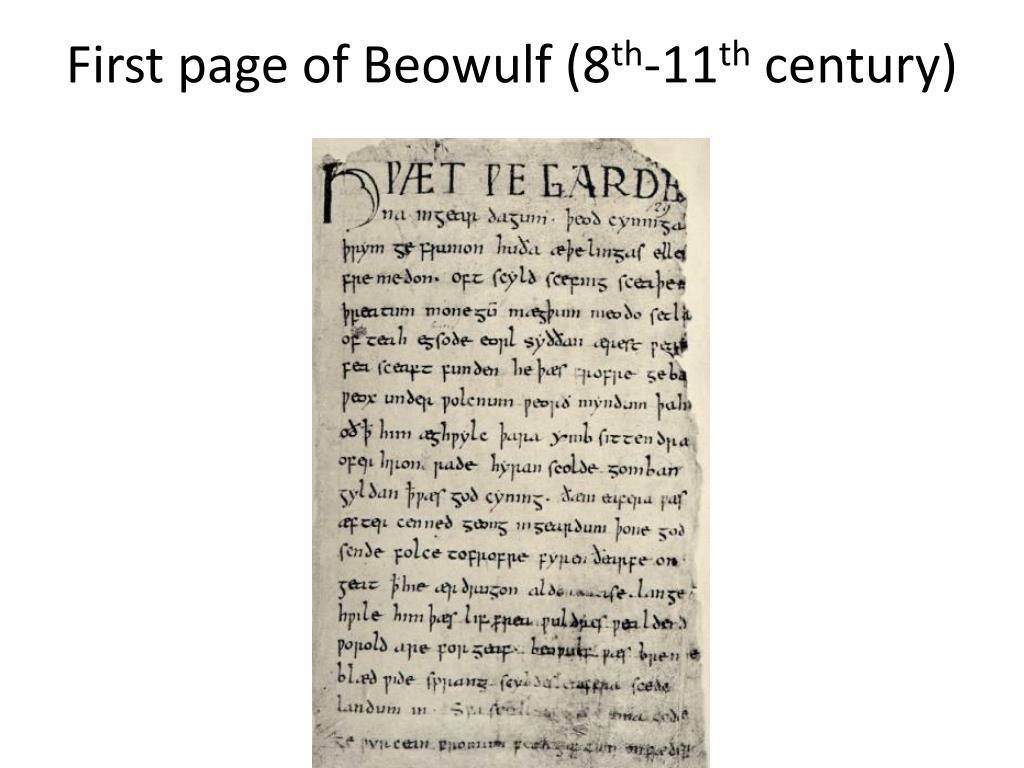 First page of Beowulf (8th-11th century)
HǷÆT ǷE GARDE
29
na in gear dagum. þeod cyninga
þrym ge frunon huða æþelingas elle
fre medon. oft scyld scefing sceaþe
þreatum monegū mægþum meodo setla
of teah egsode eorl syððan ærest ƿear
fea sceaft funden he þæs frofre geba
ƿeox under ƿolcnum ƿeorð myndum þah
oðꝥ him æghƿylc þara ymb sittendra
ofer hron rade hyran scolde gomban
gyldan ꝥ ƿæs god cyning. ðæm eafera ƿæs
æfter cenned geong in geardum þone god
sende folce tofrofre fyren ðearfe on
geat ꝥ hie ær drugon lange
hƿile him þæs lif frea ƿuldres ƿealdend
ƿorold are for geaf. beoƿulf ƿæs breme
blæd ƿide sprang eafera scede
landum in. Sƿa guma gode
ge ƿyrcean fromum on fæder